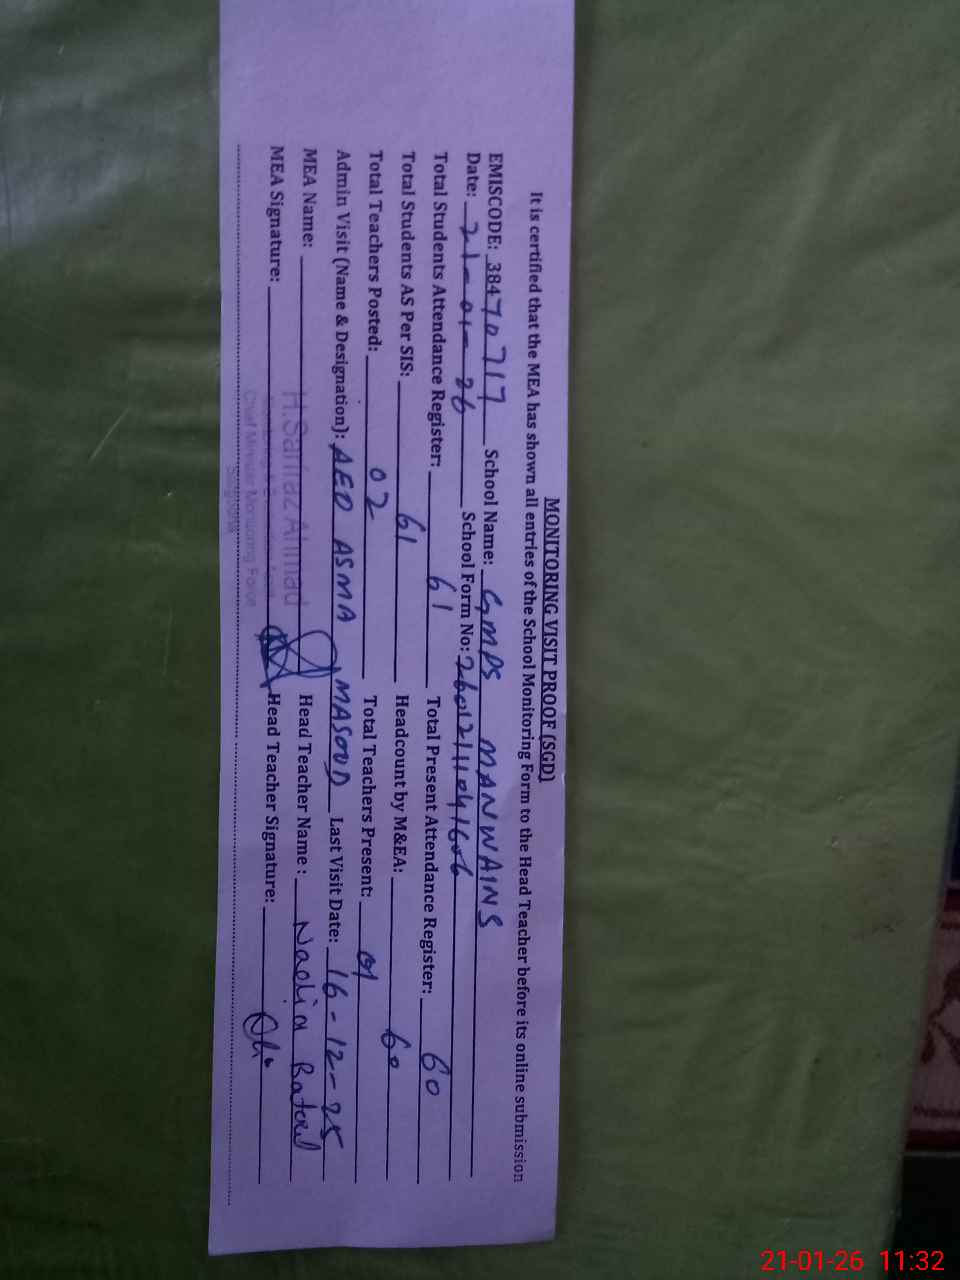 MONITORING VISIT PROOF (SGD)
It is certified that the MEA has shown all entries of the School Monitoring Form to the Head Teacher before its online submission
EMISCODE: 38470717 School Name: GMPS MANWAINS
Date: 21-01-26 School Form No: 
Total Students Attendance Register: 61 Total Present Attendance Register: 60
Total Students AS Per SIS: 61 Headcount by M&EA: 60
Total Teachers Posted: 02 Total Teachers Present: 01
Admin Visit (Name & Designation): AEO ASMA MASOOD Last Visit Date: 16-12-25
MEA Name: Ahmad Head Teacher Name: Nadia Batool
MEA Signature: Head Teacher Signature:
Chief Minister Monitoring Force
Sargodha
21-01-26 11:32